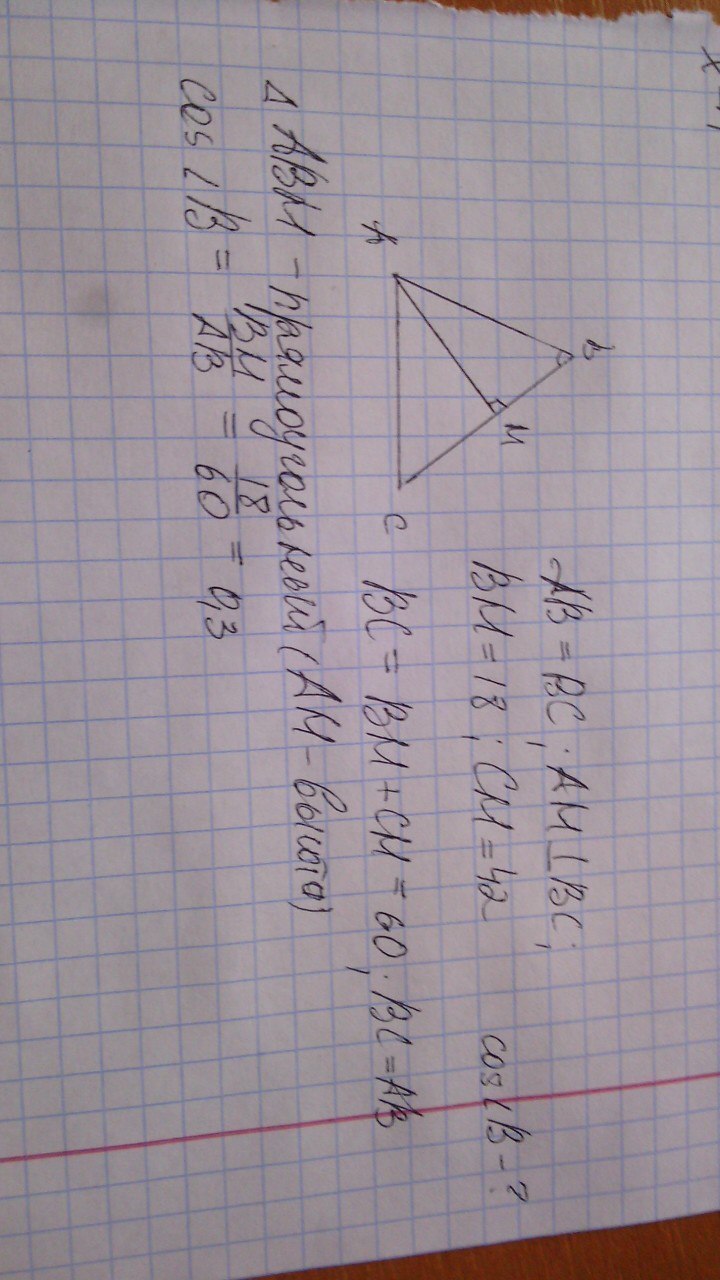 AB = BC; AM ⊥ BC;
BM = 18; CM = 42 cos∠B - ?
B
M
A
C
BC = BM + CM = 60; BC = AB
Δ ABM - прямоугольный (AM - высота)
cos∠B = BM/AB = 18/60 = 0,3